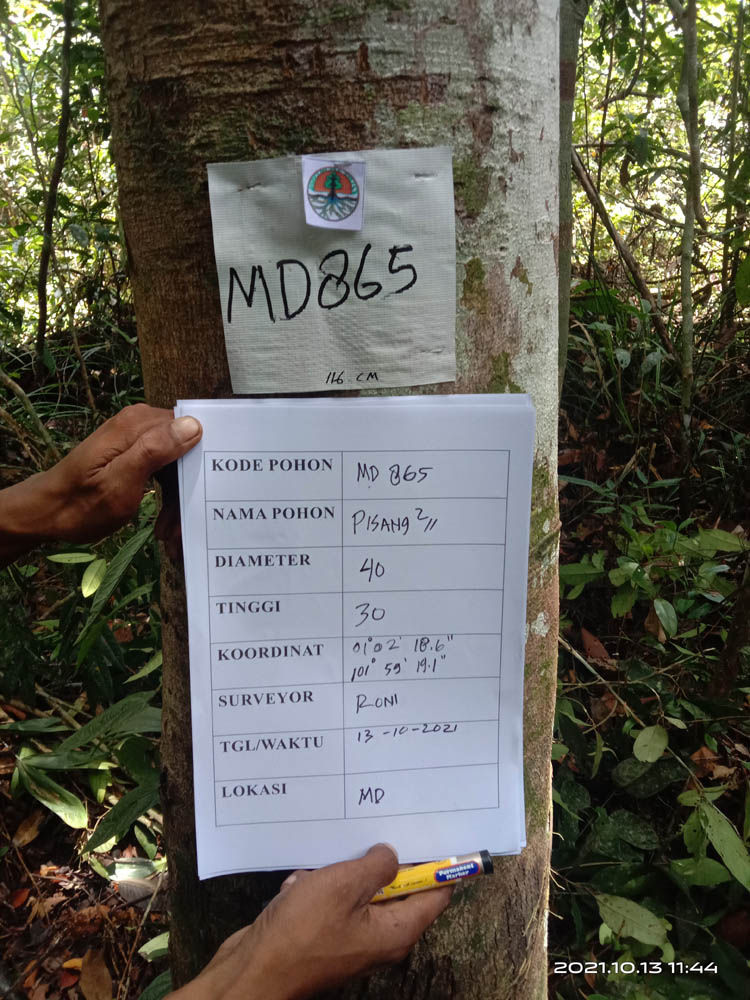 MD865
116 CM
KODE POHON MD 865
NAMA POHON PISANG 2//
DIAMETER 40
TINGGI 30
KOORDINAT 01° 02' 18.6"
101° 59' 19.1"
SURVEYOR RONI
TGL/WAKTU 13-10-2021
LOKASI MD
Permanent
Marker
2021.10.13 11:44